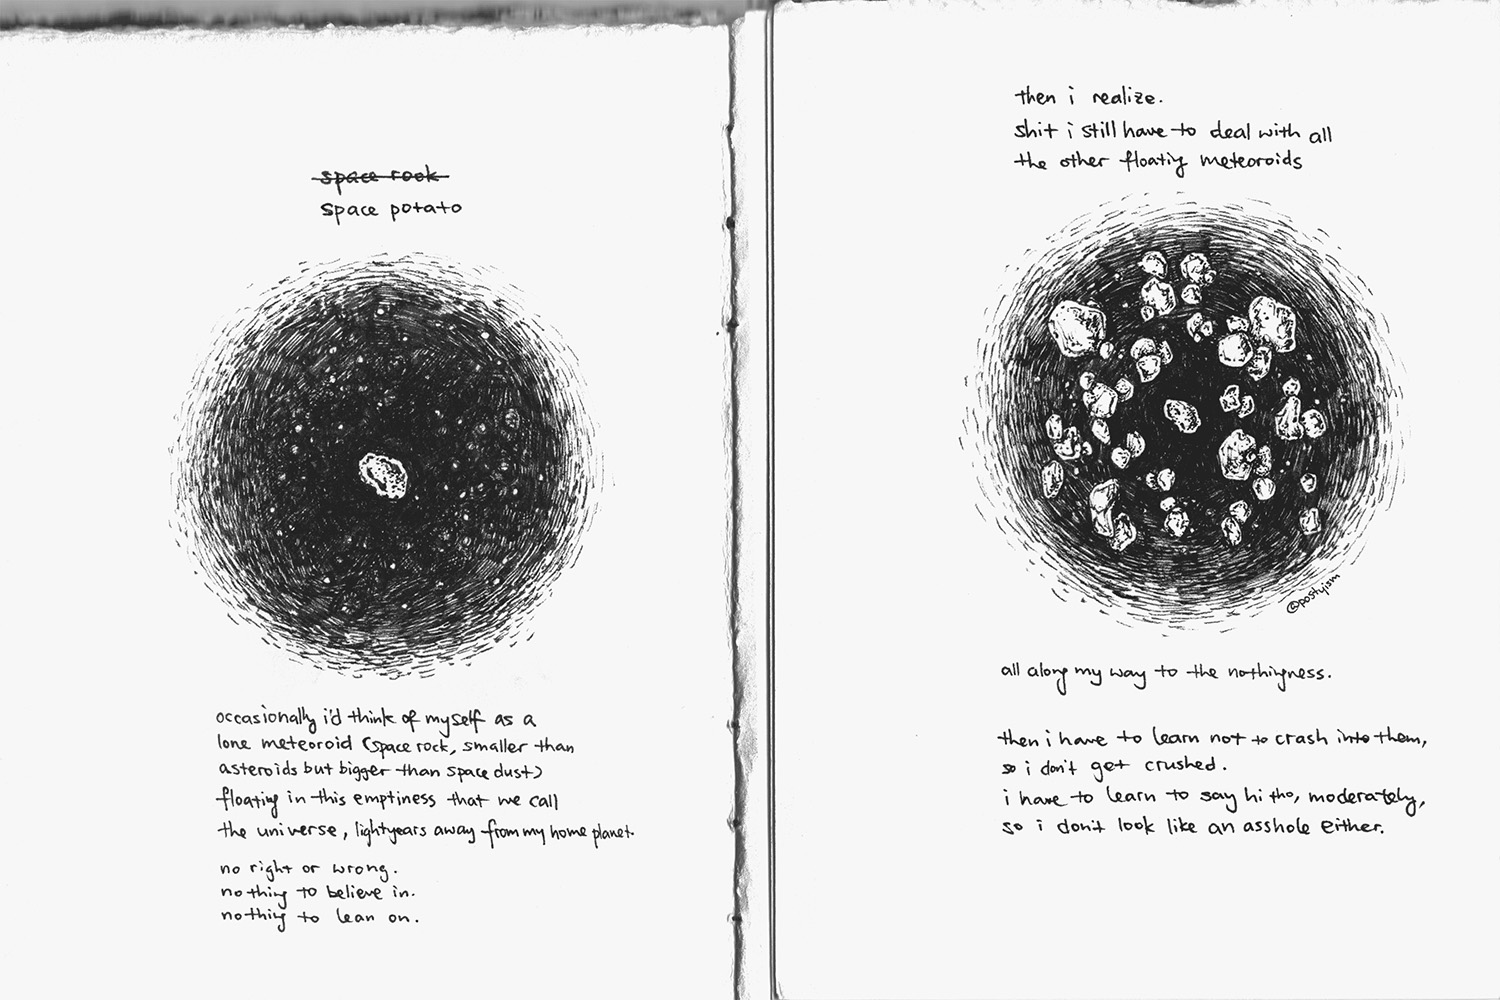 space rock
space potato
occasionally i'd think of myself as a
lone meteoroid (space rock, smaller than
asteroids but bigger than space dust)
floating in this emptiness that we call
the universe, lightyears away from my home planet.
no right or wrong.
nothing to believe in.
nothing to lean on.
then i realize.
shit i still have to deal with all
the other floating meteoroids
@postyism
all along my way to the nothingness.
then i have to learn not to crash into them,
so i don't get crushed.
i have to learn to say hi tho, moderately,
so i don't look like an asshole either.